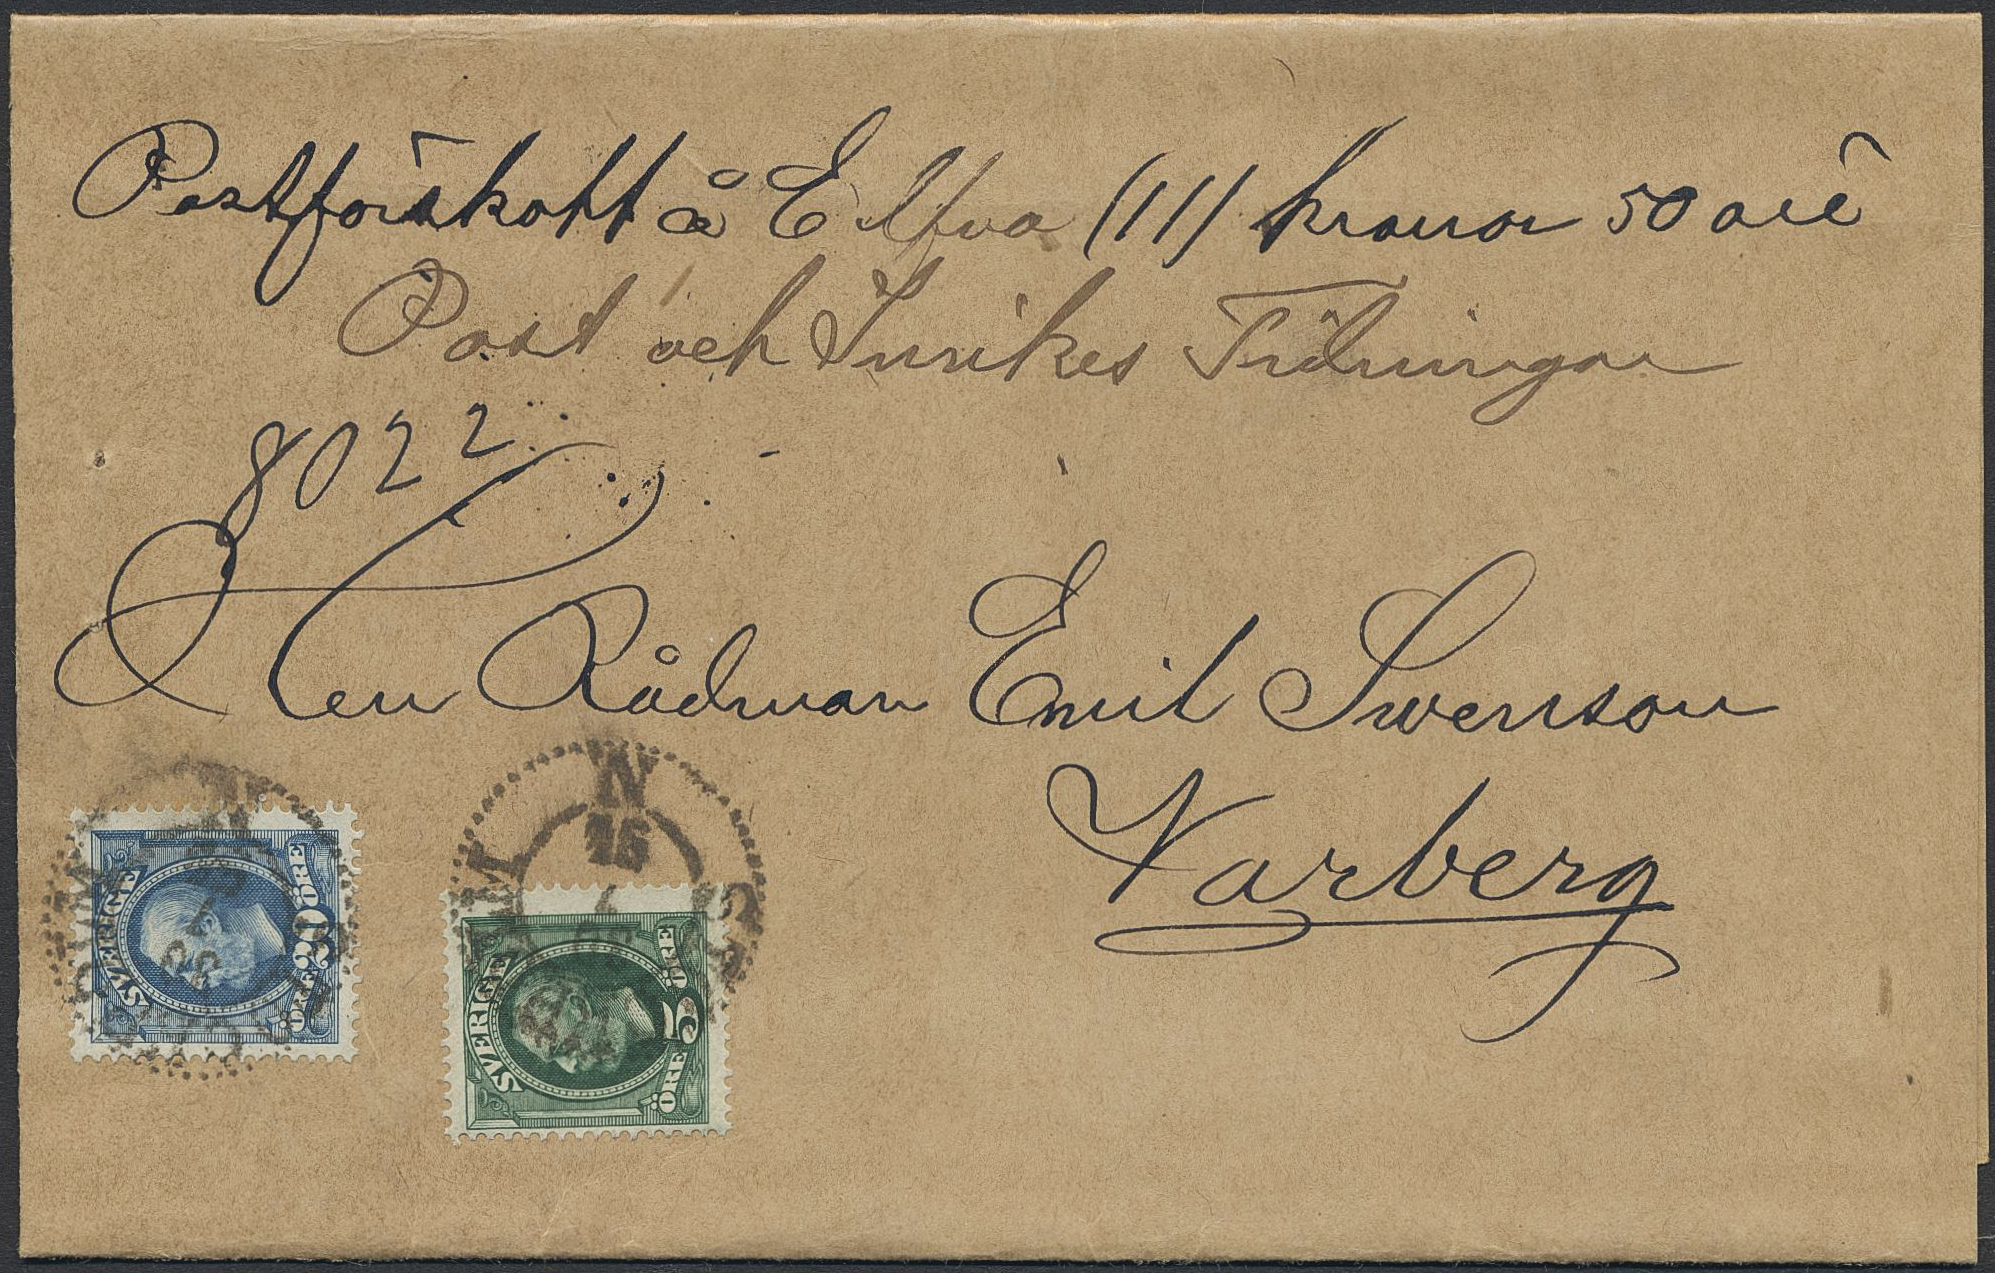 Postförskott å Elfva (11) kronor 50 öre
Post och Inrikes Tidningar
8022
Herr Rådman Emil Swenson
Warberg
SVERIGE
ÖRE 20 ÖRE
N
15
SVERIGE
ÖRE 5 ÖRE